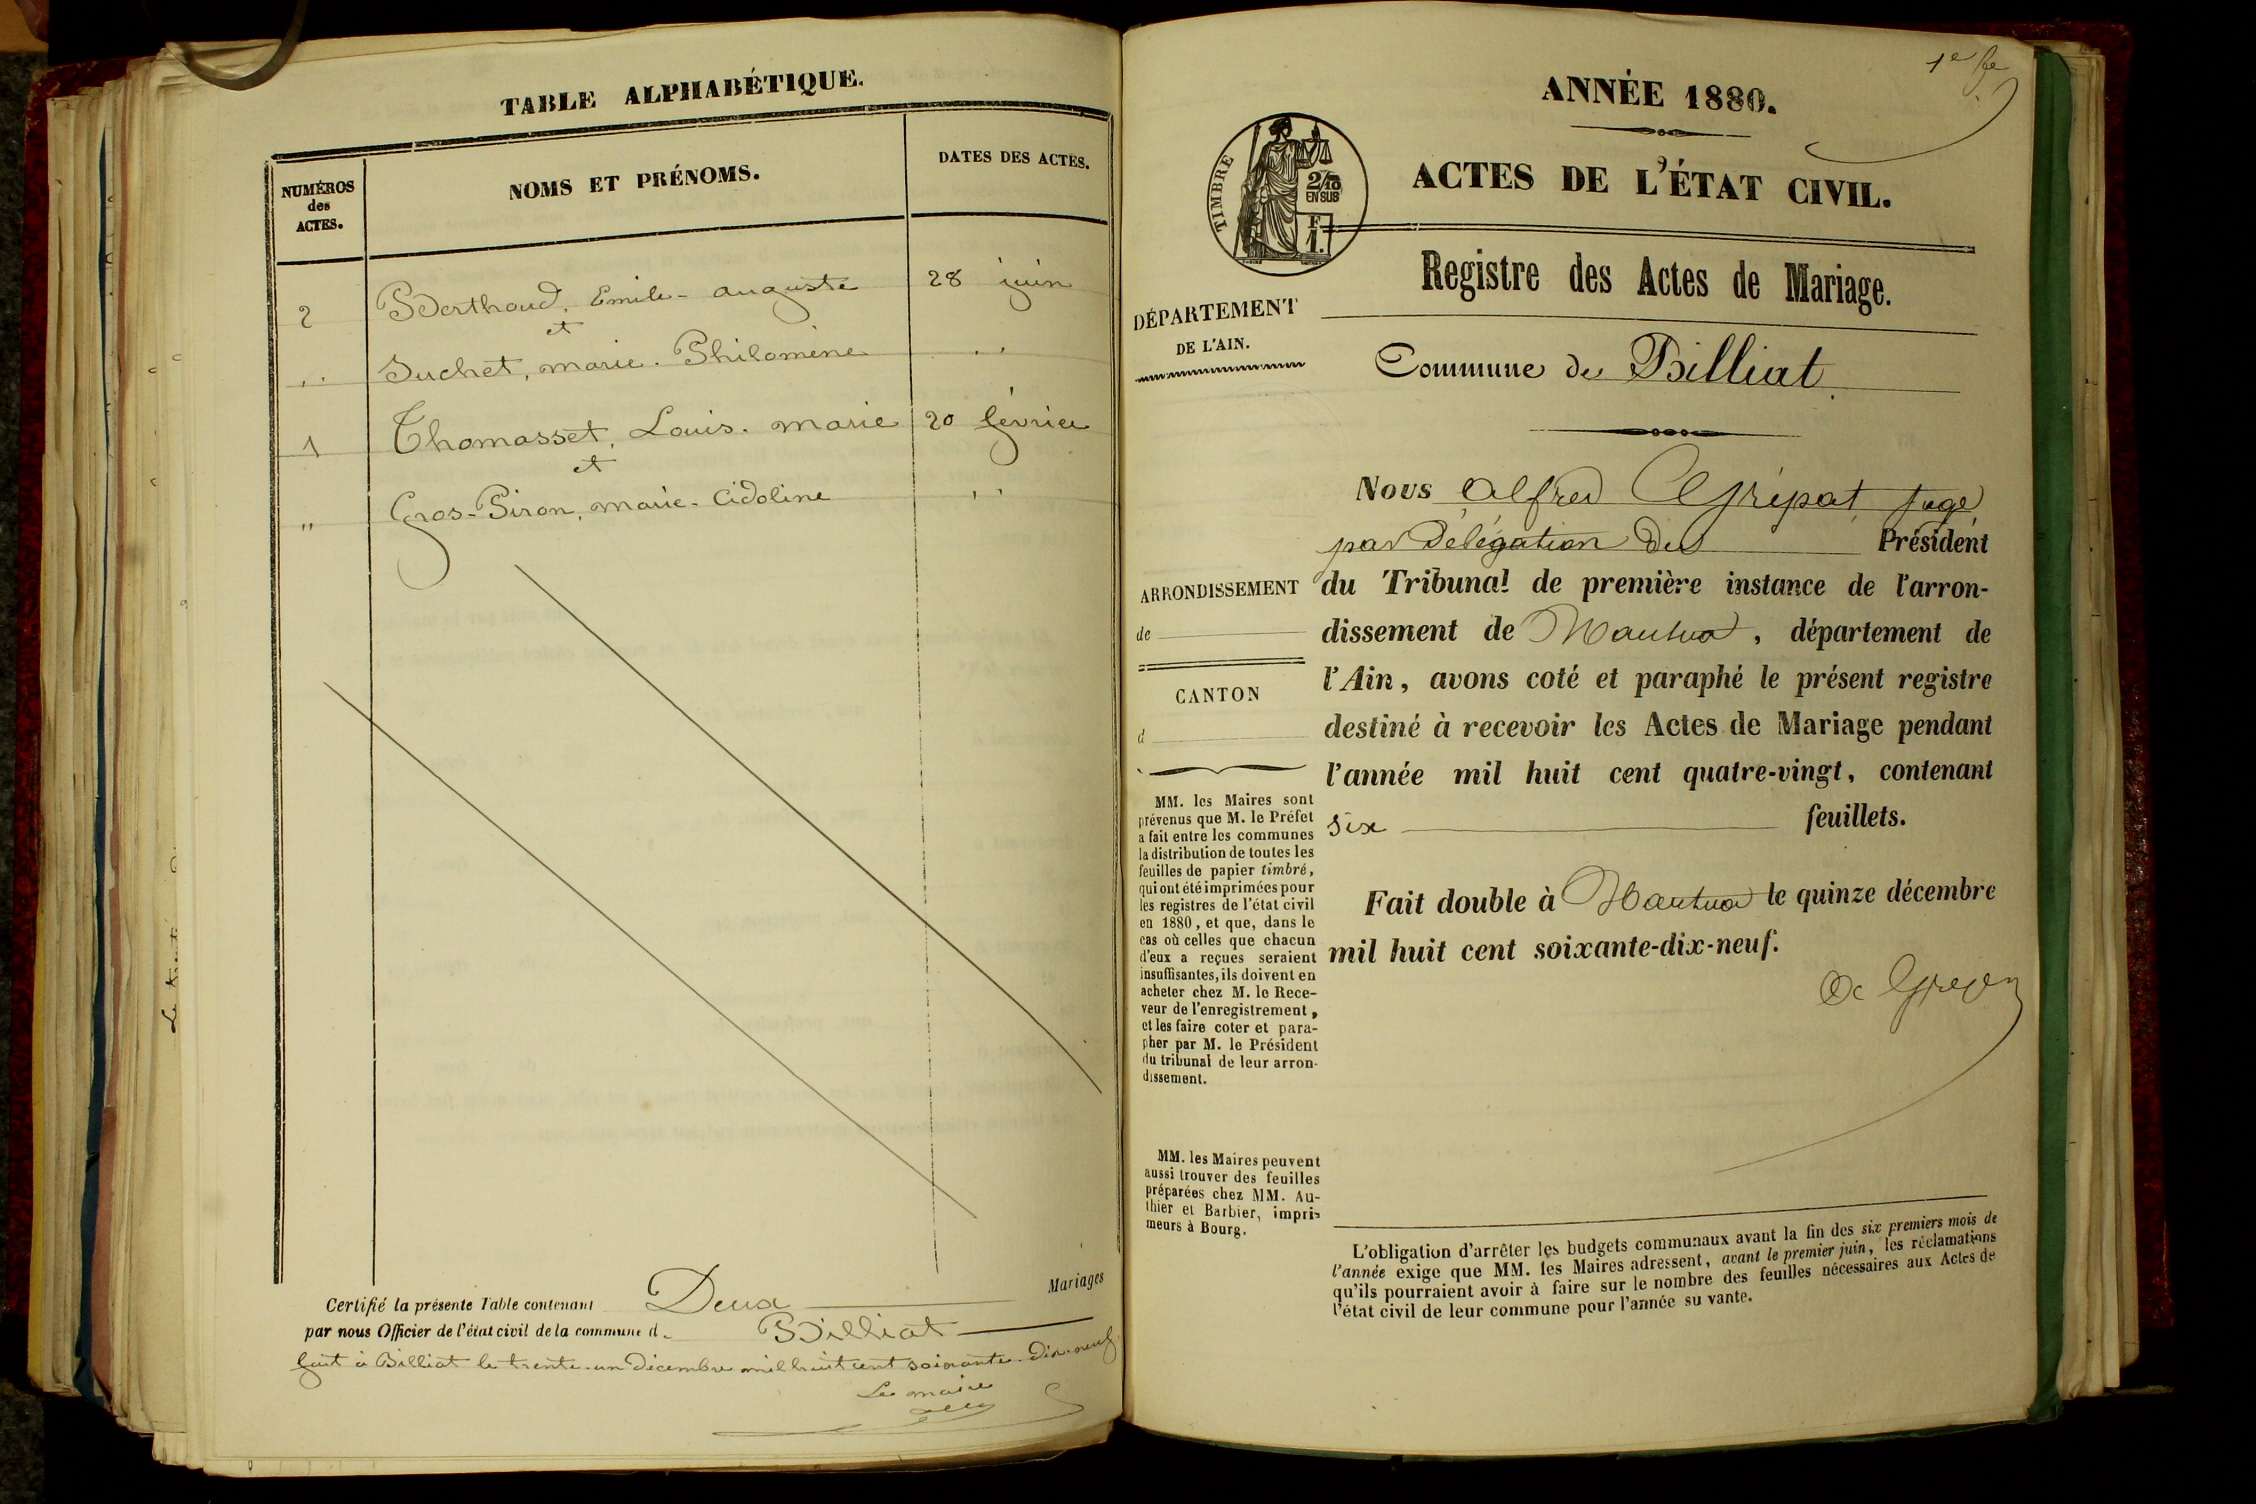 TABLE ALPHABÉTIQUE.
NUMÉROS
des
ACTES.
NOMS ET PRÉNOMS.
DATES DES ACTES.
2 Berthoud, Emile-auguste 28 juin
et
" Suchet, marie. Philomène "
1 Thomasset, Louis. marie 20 février
et
" Gros-Piron, marie-Cidoline "
Certifié la présente Table contenant Deux Mariages
par nous Officier de l'état civil de la commune d. Billiat
fait à Billiat le trente-un décembre mil huit cent soixante-dix-neuf.
Le maire
1e
ANNÉE 1880.
ACTES DE L'ÉTAT CIVIL.
TIMBRE
2/10
EN SUS
F.
1.
Registre des Actes de Mariage.
DÉPARTEMENT
DE L'AIN.
Commune de Billiat
Nous Alfred juge
par Délégation du Président
du Tribunal de première instance de l'arron-
dissement de Nantua, département de
l'Ain, avons coté et paraphé le présent registre
destiné à recevoir les Actes de Mariage pendant
l'année mil huit cent quatre-vingt, contenant
six feuillets.
Fait double à Nantua le quinze décembre
mil huit cent soixante-dix-neuf.
ARRONDISSEMENT
de
CANTON
d
MM. les Maires sont
prévenus que M. le Préfet
a fait entre les communes
la distribution de toutes les
feuilles de papier timbré,
qui ont été imprimées pour
les registres de l'état civil
en 1880, et que, dans le
cas où celles que chacun
d'eux a reçues seraient
insuffisantes, ils doivent en
acheter chez M. le Rece-
veur de l'enregistrement,
et les faire coter et para-
pher par M. le Président
du tribunal de leur arron-
dissement.
MM. les Maires peuvent
aussi trouver des feuilles
préparées chez MM. Au-
thier et Barbier, impri-
meurs à Bourg.
L'obligation d'arrêter les budgets communaux avant la fin des six premiers mois de
l'année exige que MM. les Maires adressent, avant le premier juin, les réclamations
qu'ils pourraient avoir à faire sur le nombre des feuilles nécessaires aux Actes de
l'état civil de leur commune pour l'année su vante.